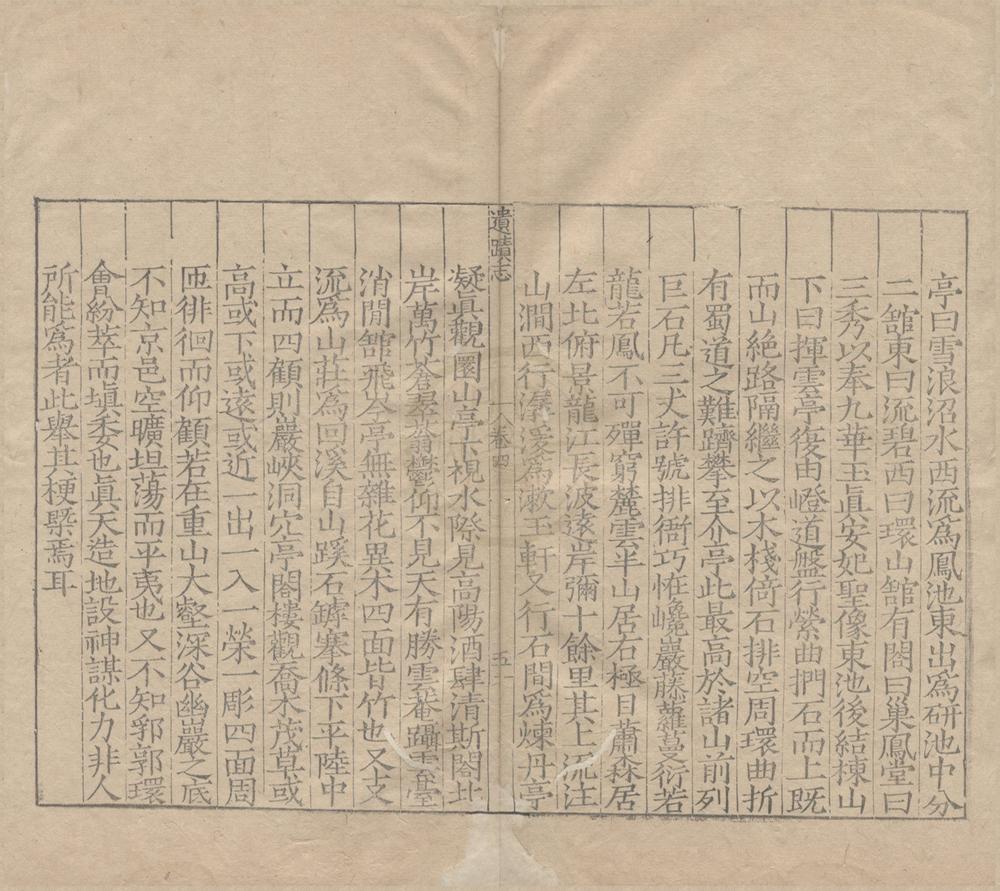 亭曰雪浪沼水西流爲鳳池東出爲研池中分
二館東曰流碧西曰環山館有閣曰巢鳳堂曰
三秀以奉九華玉眞安妃聖像東池後結棟山
下曰揮雲亭復由嶝道盤行縈曲捫石而上旣
而山絶路隔繼之以木棧倚石排空周環曲折
有蜀道之難躋攀至介亭此最高於諸山前列
巨石凡三丈許號排衙巧恠巉巖藤蘿蔓衍若
龍若鳳不可殫窮麓雲半山居右極目蕭森居
左北俯景龍江長波遠岸彌十餘里其上流注
山澗西行潺湲爲漱玉軒又行石間爲煉丹亭
遺蹟志
卷四
五
凝眞觀圜山亭下視水際見高陽酒肆清斯閣北
岸萬竹蒼翠蓊鬱仰不見天有勝雲菴躡雲臺
消閒館飛岑亭無雜花異木四面皆竹也又支
流爲山莊爲回溪自山蹊石罅搴條下平陸中
立而四顧則巖峽洞穴亭閣樓觀喬木茂草或
高或下或遠或近一出一入一榮一彫四面周
匝徘徊而仰顧若在重山大壑深谷幽巖之底
不知京邑空曠坦蕩而平夷也又不知郛郭環
會紛萃而塡委也眞天造地設神謀化力非人
所能爲者此舉其梗槩焉耳